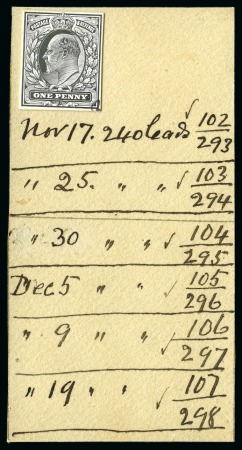 POSTAGE REVENUE
ONE PENNY
Nov 17. 240 leads √ 102/293
" 25. " " √ 103/294
" 30 " " √ 104/295
Dec 5 " " √ 105/296
" 9 " " √ 106/297
" 19 " " √ 107/298